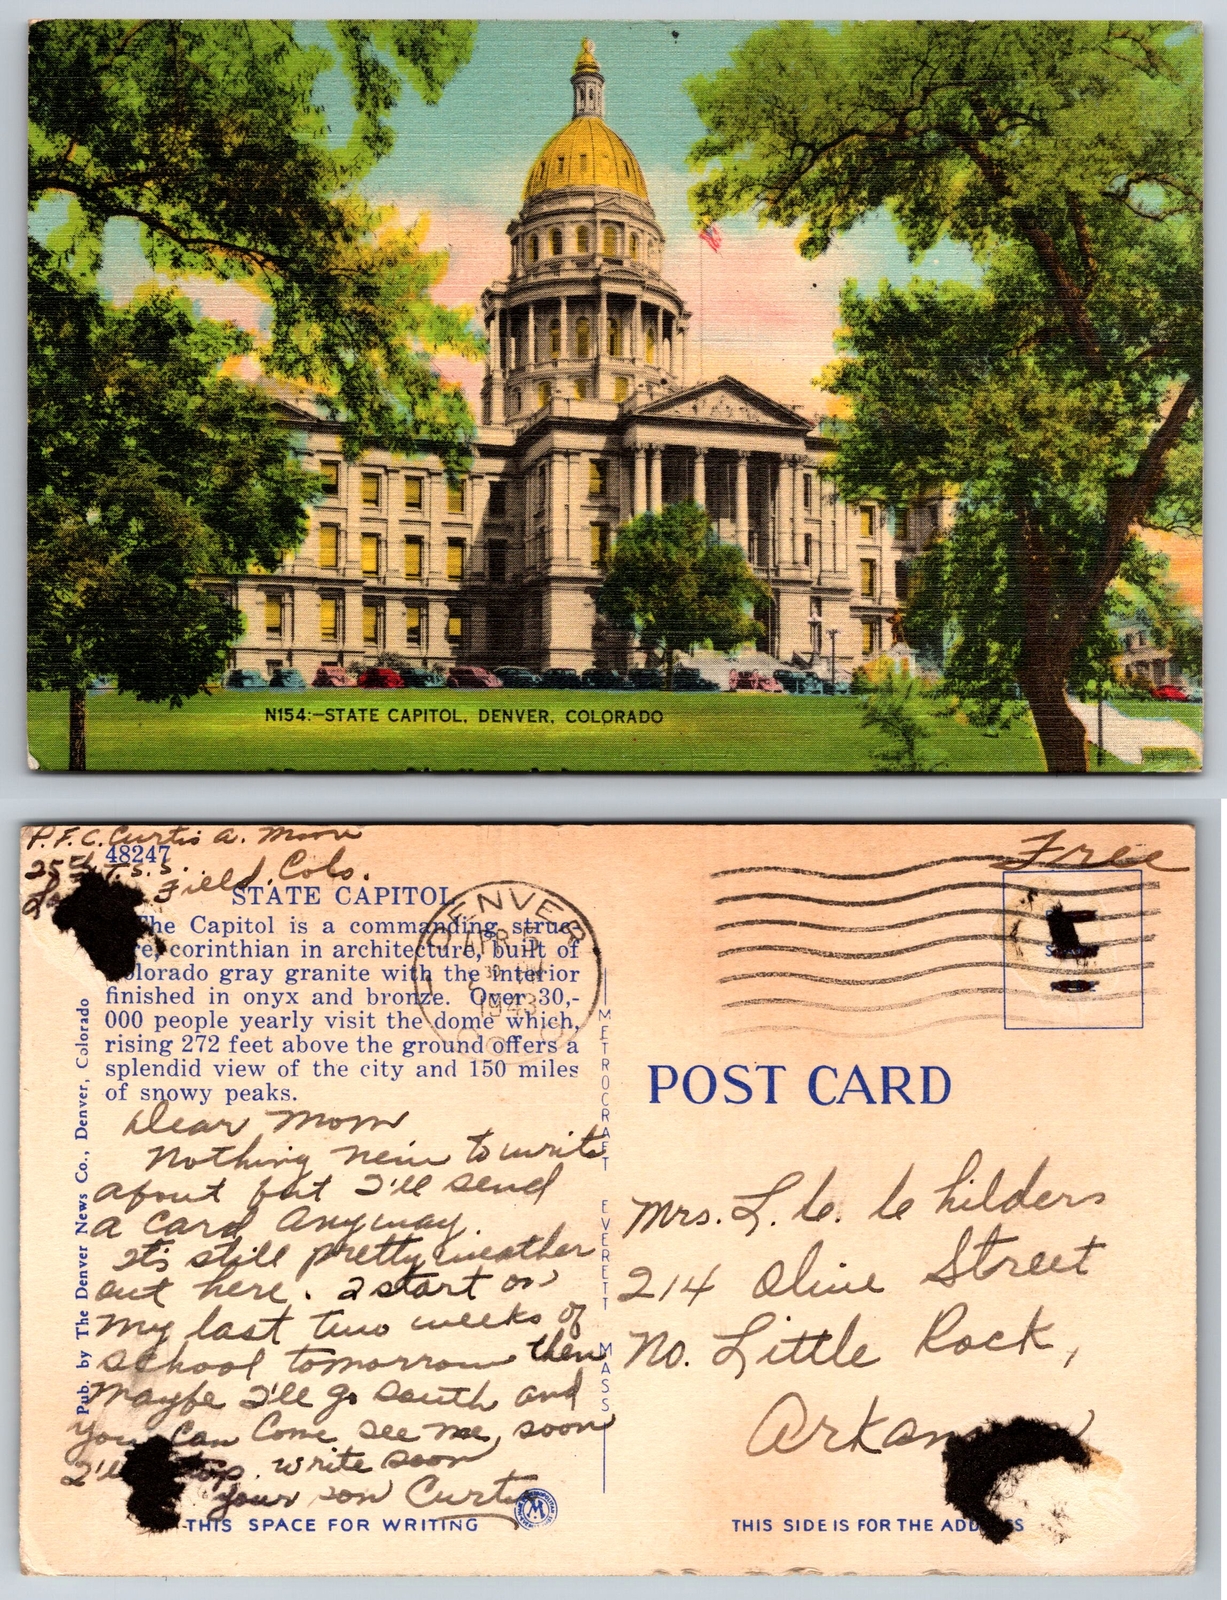 N154:—STATE CAPITOL, DENVER, COLORADO
P.F.C. Curtis A. Moon
25th T.S.S.
Field, Colo.
48247
STATE CAPITOL
The Capitol is a commanding struc-
re, corinthian in architecture, built of
olorado gray granite with the interior
finished in onyx and bronze. Over 30,-
000 people yearly visit the dome which,
rising 272 feet above the ground offers a
splendid view of the city and 150 miles
of snowy peaks.
Dear Mom
Nothing new to write
about but I'll send
a card anyway.
It's still pretty weather
out here. I start on
my last two weeks of
school tomorrow then
maybe I'll go south and
you can come see me, soon
I'll stop. write soon
your son Curtis
THIS SPACE FOR WRITING
Pub. by The Denver News Co., Denver, Colorado
METROCRAFT EVERETT MASS
DENVER
APR 5
1943
COLO
Free
POST CARD
Mrs. L. C. Childers
214 Olive Street
No. Little Rock,
Arkansas
THIS SIDE IS FOR THE ADDRESS